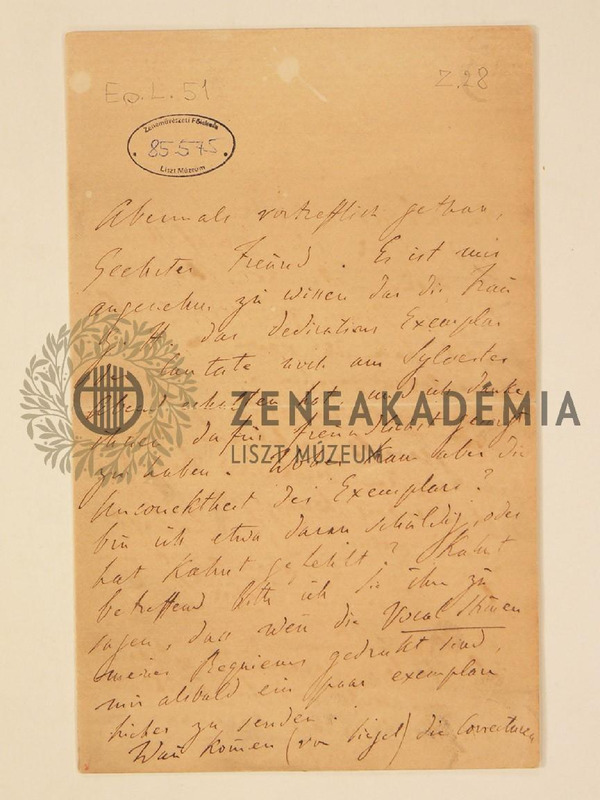 Ep. L. 51
Z. 28
Zeneművészeti Főiskola
85.575
Liszt Múzeum
Abermals vortrefflich gethan,
Geehrter Freund. Es ist mir
angenehm zu wissen das die Frau
das dedications Exemplar
Cantate noch am Sylvester
Abend erhalten hat und ich danke
Ihnen dafür freundlichst gesorgt
zu haben. Woher kam aber die
Uncorrektheit des Exemplars?
bin ich etwa daran schuldig, oder
hat Kahnt gefehlt? Kahnt
betreffend bitte ich Sie ihm zu
sagen, dass wen die Vocal Stimen
meines Requiems gedruckt sind,
mir alsbald ein paar exemplare
hieher zu senden.
Wan komen (von Siegel) die Correcturen
ZENEAKADEMIA
LISZT MÚZEUM